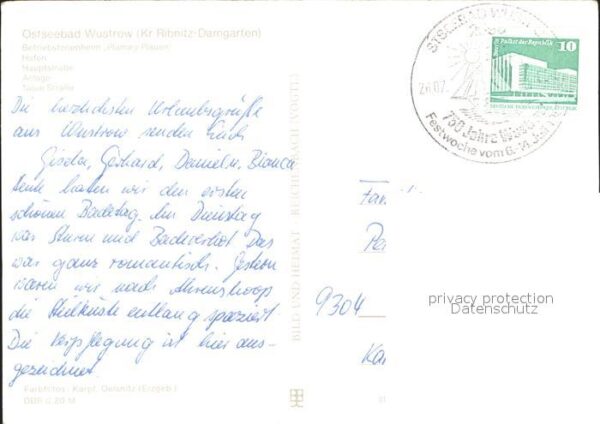 Ostseebad Wustrow (Kr Ribnitz-Damgarten)
Betriebsferienheim
Hafen
Hauptstraße
Anlage
Straße
Die herzlichsten Urlaubsgrüße
aus Wustrow senden Euch
Gisela, Gerhard, Daniel u. Bianca
Heute hatten wir den ersten
schönen Badetag. Am Dienstag
war Sturm und Badeverbot. Das
war ganz romantisch. Gestern
waren wir nach Ahrenshoop
die Steilküste entlang spaziert.
Die Verpflegung ist hier aus-
gezeichnet.
Farbfotos: Karpf, Oelsnitz (Erzgeb.)
BILD UND HEIMAT REICHENBACH
OSTSEEBAD
750 Jahre
Festwoche vom
Palast der Republik
10
9304
privacy protection
Datenschutz